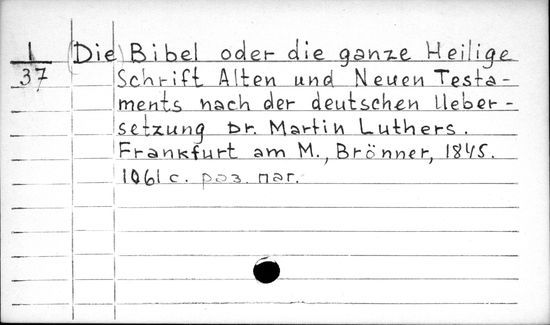 1/37 (Die) Bibel oder die ganze Heilige
Schrift Alten und Neuen Testa-
ments nach der deutschen Ueber-
setzung Dr. Martin Luthers.
Frankfurt am M., Brönner, 1845.
1061 c. раз. паг.